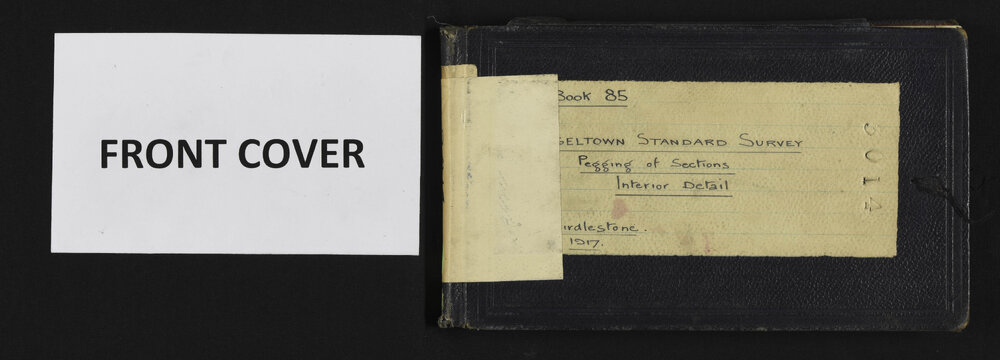 FRONT COVER
Book 85
GELTOWN STANDARD SURVEY
Pegging of Sections
Interior Detail
irdlestone.
1917.
5014